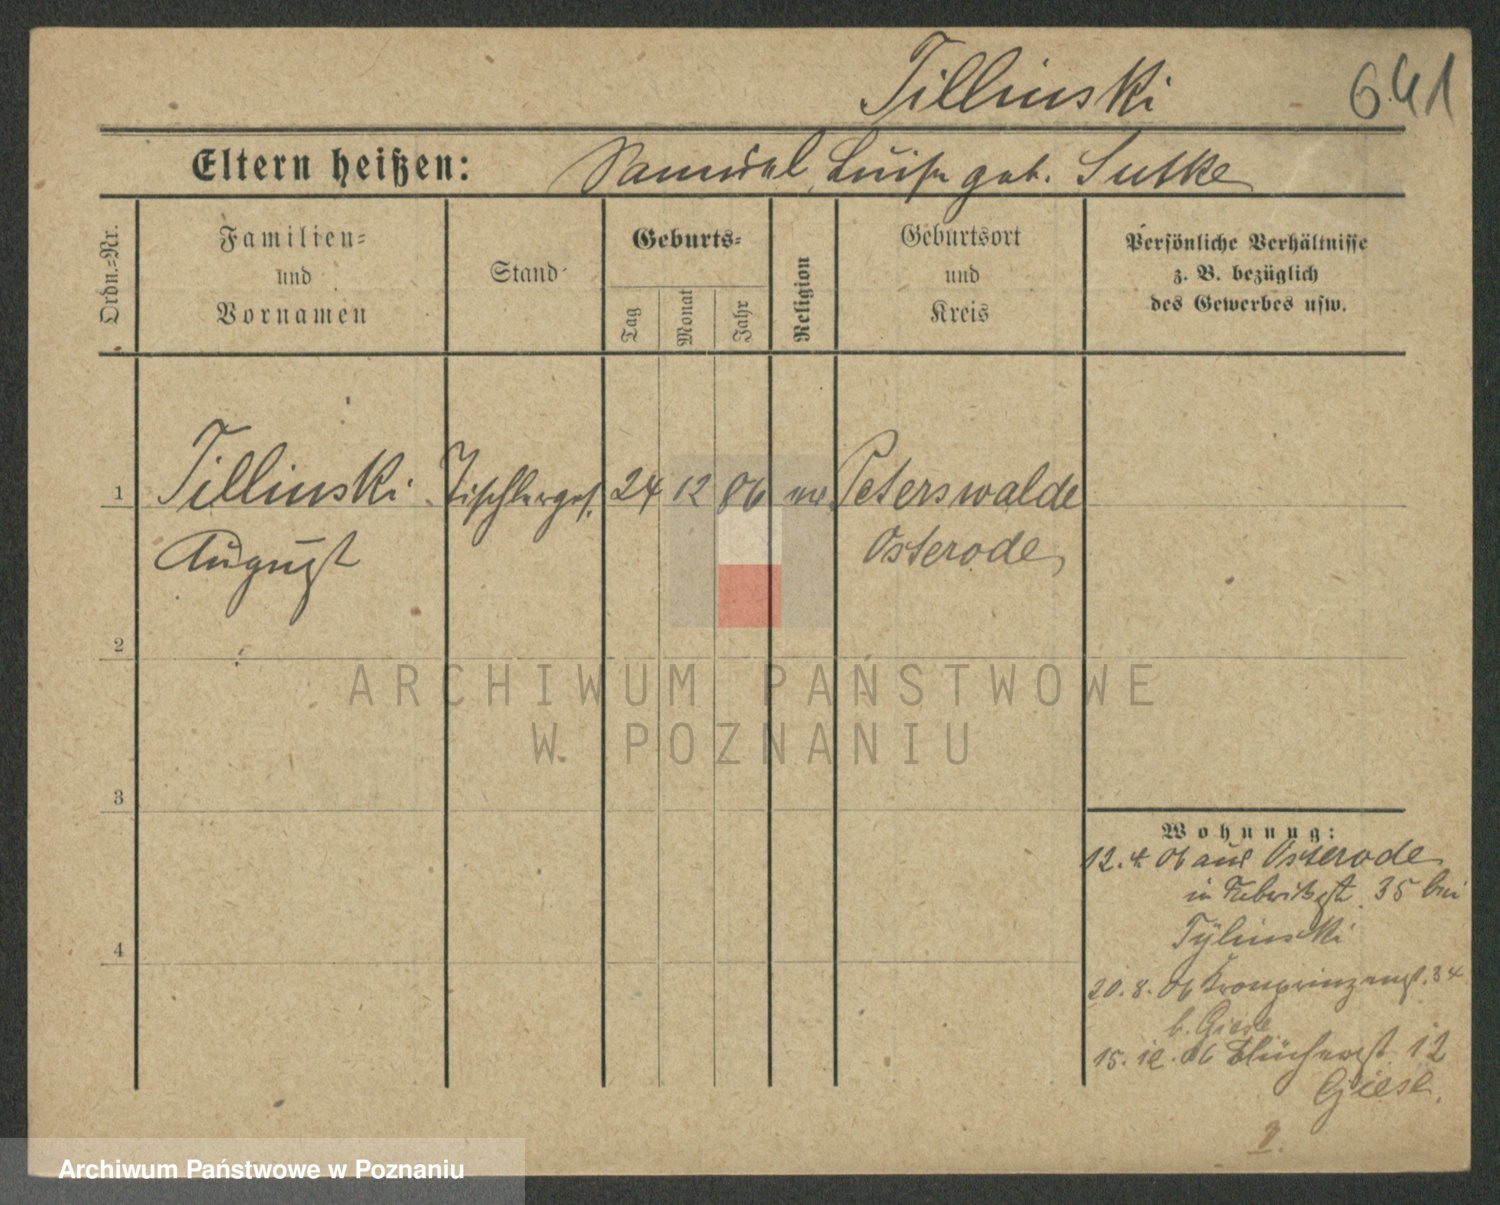 Tillinski 641
Eltern heißen: Samuel, Luise geb. Sutke
Ordn.-Nr.
Familien-
und
Vornamen
Stand
Geburts-
Tag
Monat
Jahr
Religion
Geburtsort
und
Kreis
Persönliche Verhältnisse
z. B. bezüglich
des Gewerbes usw.
1 Tillinski Tischlerges. 24 12 86 Peterswalde
August Osterode
2
3
4
Wohnung:
12. 4. 06 aus Osterode
in Fabrikst. 35 bei
Tylinski
20. 8. 06 Kronprinzenst. 34
b. Giese
15. 06 Blücherst 12
Giese.
ARCHIWUM PAŃSTWOWE
W POZNANIU
Archiwum Państwowe w Poznaniu